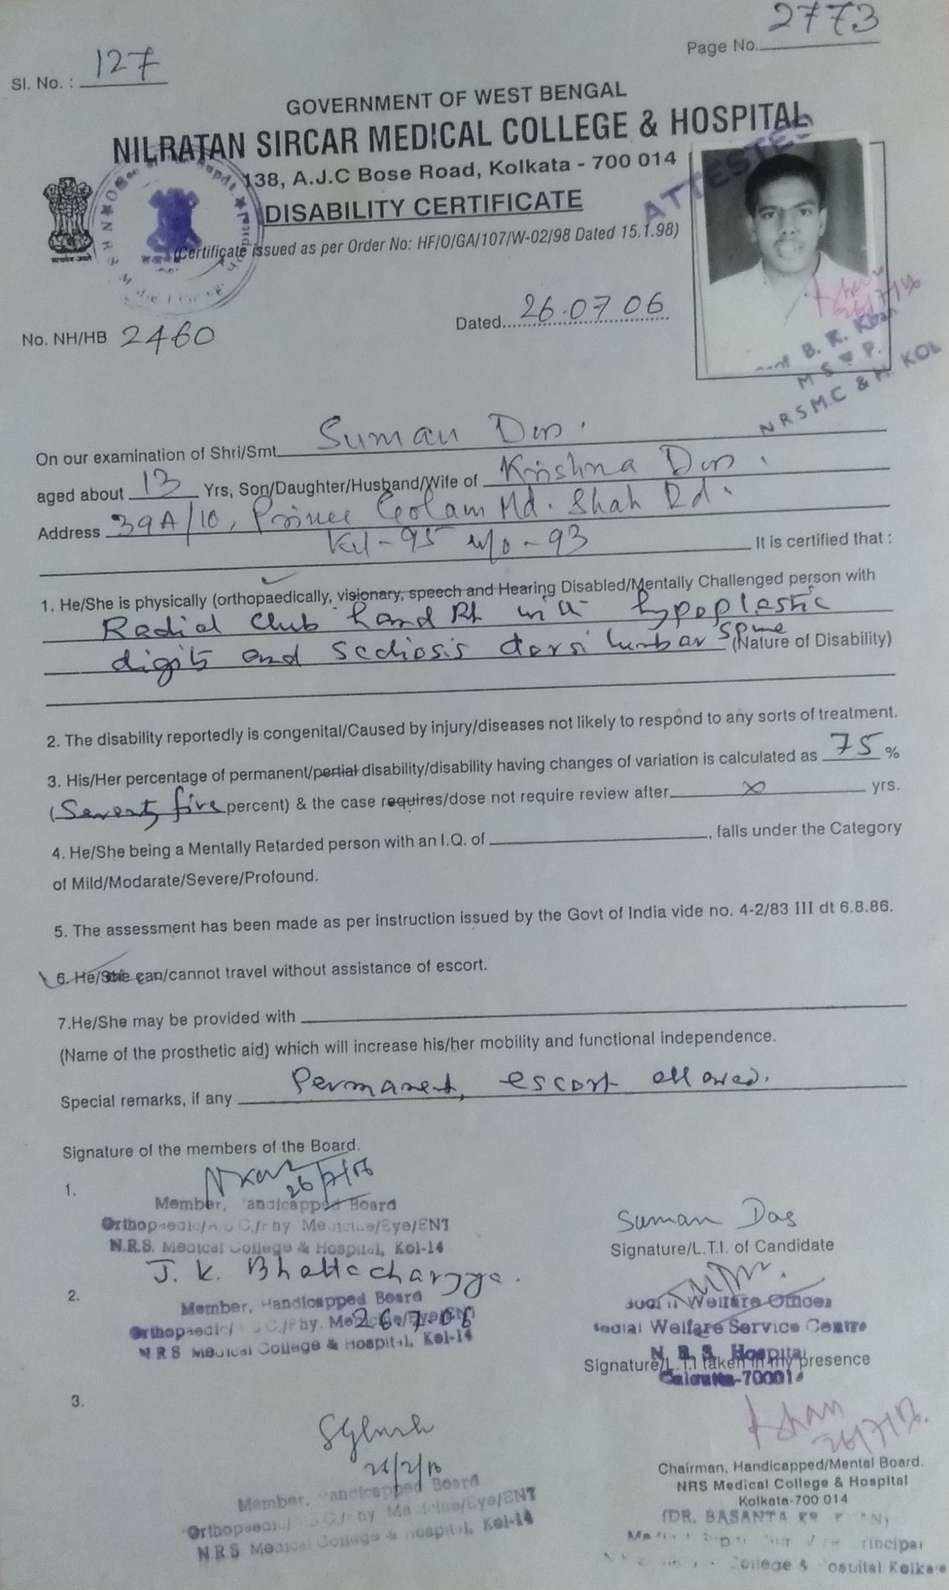 Sl. No. : 127
Page No. 2773
GOVERNMENT OF WEST BENGAL
NILRATAN SIRCAR MEDICAL COLLEGE & HOSPITAL
138, A.J.C Bose Road, Kolkata - 700 014
ATTESTED
DISABILITY CERTIFICATE
(Certificate issued as per Order No: HF/O/GA/107/W-02/98 Dated 15.1.98)
No. NH/HB 2460
Dated 26.07 06
B. K. Khan
M S P.
N R S M.C & H KOL
On our examination of Shri/Smt Suman Das.
aged about 13 Yrs, Son/Daughter/Husband/Wife of Krishna Das.
Address 39A/10, Prince Golam Md. Shah Rd.
Kol-95 - 93 It is certified that :
1. He/She is physically (orthopaedically, visionary, speech and Hearing Disabled/Mentally Challenged person with
Radial Club hand Rt with hypoplastic
digits and Scoliosis dorsi lumbar Spine (Nature of Disability)
2. The disability reportedly is congenital/Caused by injury/diseases not likely to respond to any sorts of treatment.
3. His/Her percentage of permanent/pertial disability/disability having changes of variation is calculated as 75 %
(Seventy five percent) & the case requires/dose not require review after x yrs.
4. He/She being a Mentally Retarded person with an I.Q. of , falls under the Category
of Mild/Modarate/Severe/Profound.
5. The assessment has been made as per instruction issued by the Govt of India vide no. 4-2/83 III dt 6.8.86.
6. He/She can/cannot travel without assistance of escort.
7.He/She may be provided with
(Name of the prosthetic aid) which will increase his/her mobility and functional independence.
Special remarks, if any Permanent, escort allowed.
Signature of the members of the Board.
1.
26/7/06
Member, Handicapped Board
Orthopaedic/ Medicine/Eye/ENT
N.R.S. Medical College & Hospital, Kol-14
Suman Das
Signature/L.T.I. of Candidate
2.
J. K. Bhattacharyya.
Member, Handicapped Board
26 7 06
Orthopaedic/
N R S Medical College & Hospital, Kol-14
Welfare Officer
Social Welfare Service Centre
N. R. S. Hospital
Signature/L.T.I taken in my presence
Calcutta-700014
3.
Member, Handicapped Board
Orthopaedic/ Medicine/Eye/ENT
N R S Medical College & Hospital, Kol-14
Khan
26/7/06
Chairman, Handicapped/Mental Board.
NRS Medical College & Hospital
Kolkata-700 014
(DR. BASANTA
Principal
College & Hospital Kolkata